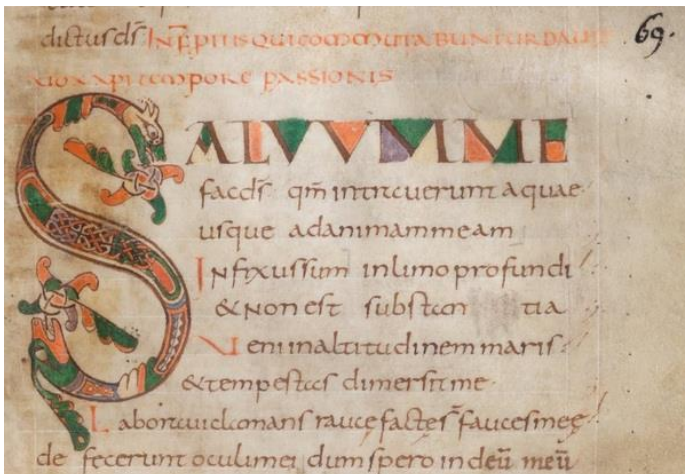 dictus ds IN FEPITIS QUI COMMUTABUNTUR DAVID
XPI TEMPORE PASSIONIS
69.
SALVUM ME
fac ds qm intraverunt aquae
usque ad animam meam
Infixus sum in limo profundi
& non est substan tia
Veni in altitudinem maris
& tempestas dimersit me
Laboravi clamans rauce factes fauces meę
defecerunt oculi mei dum spero in deū meū